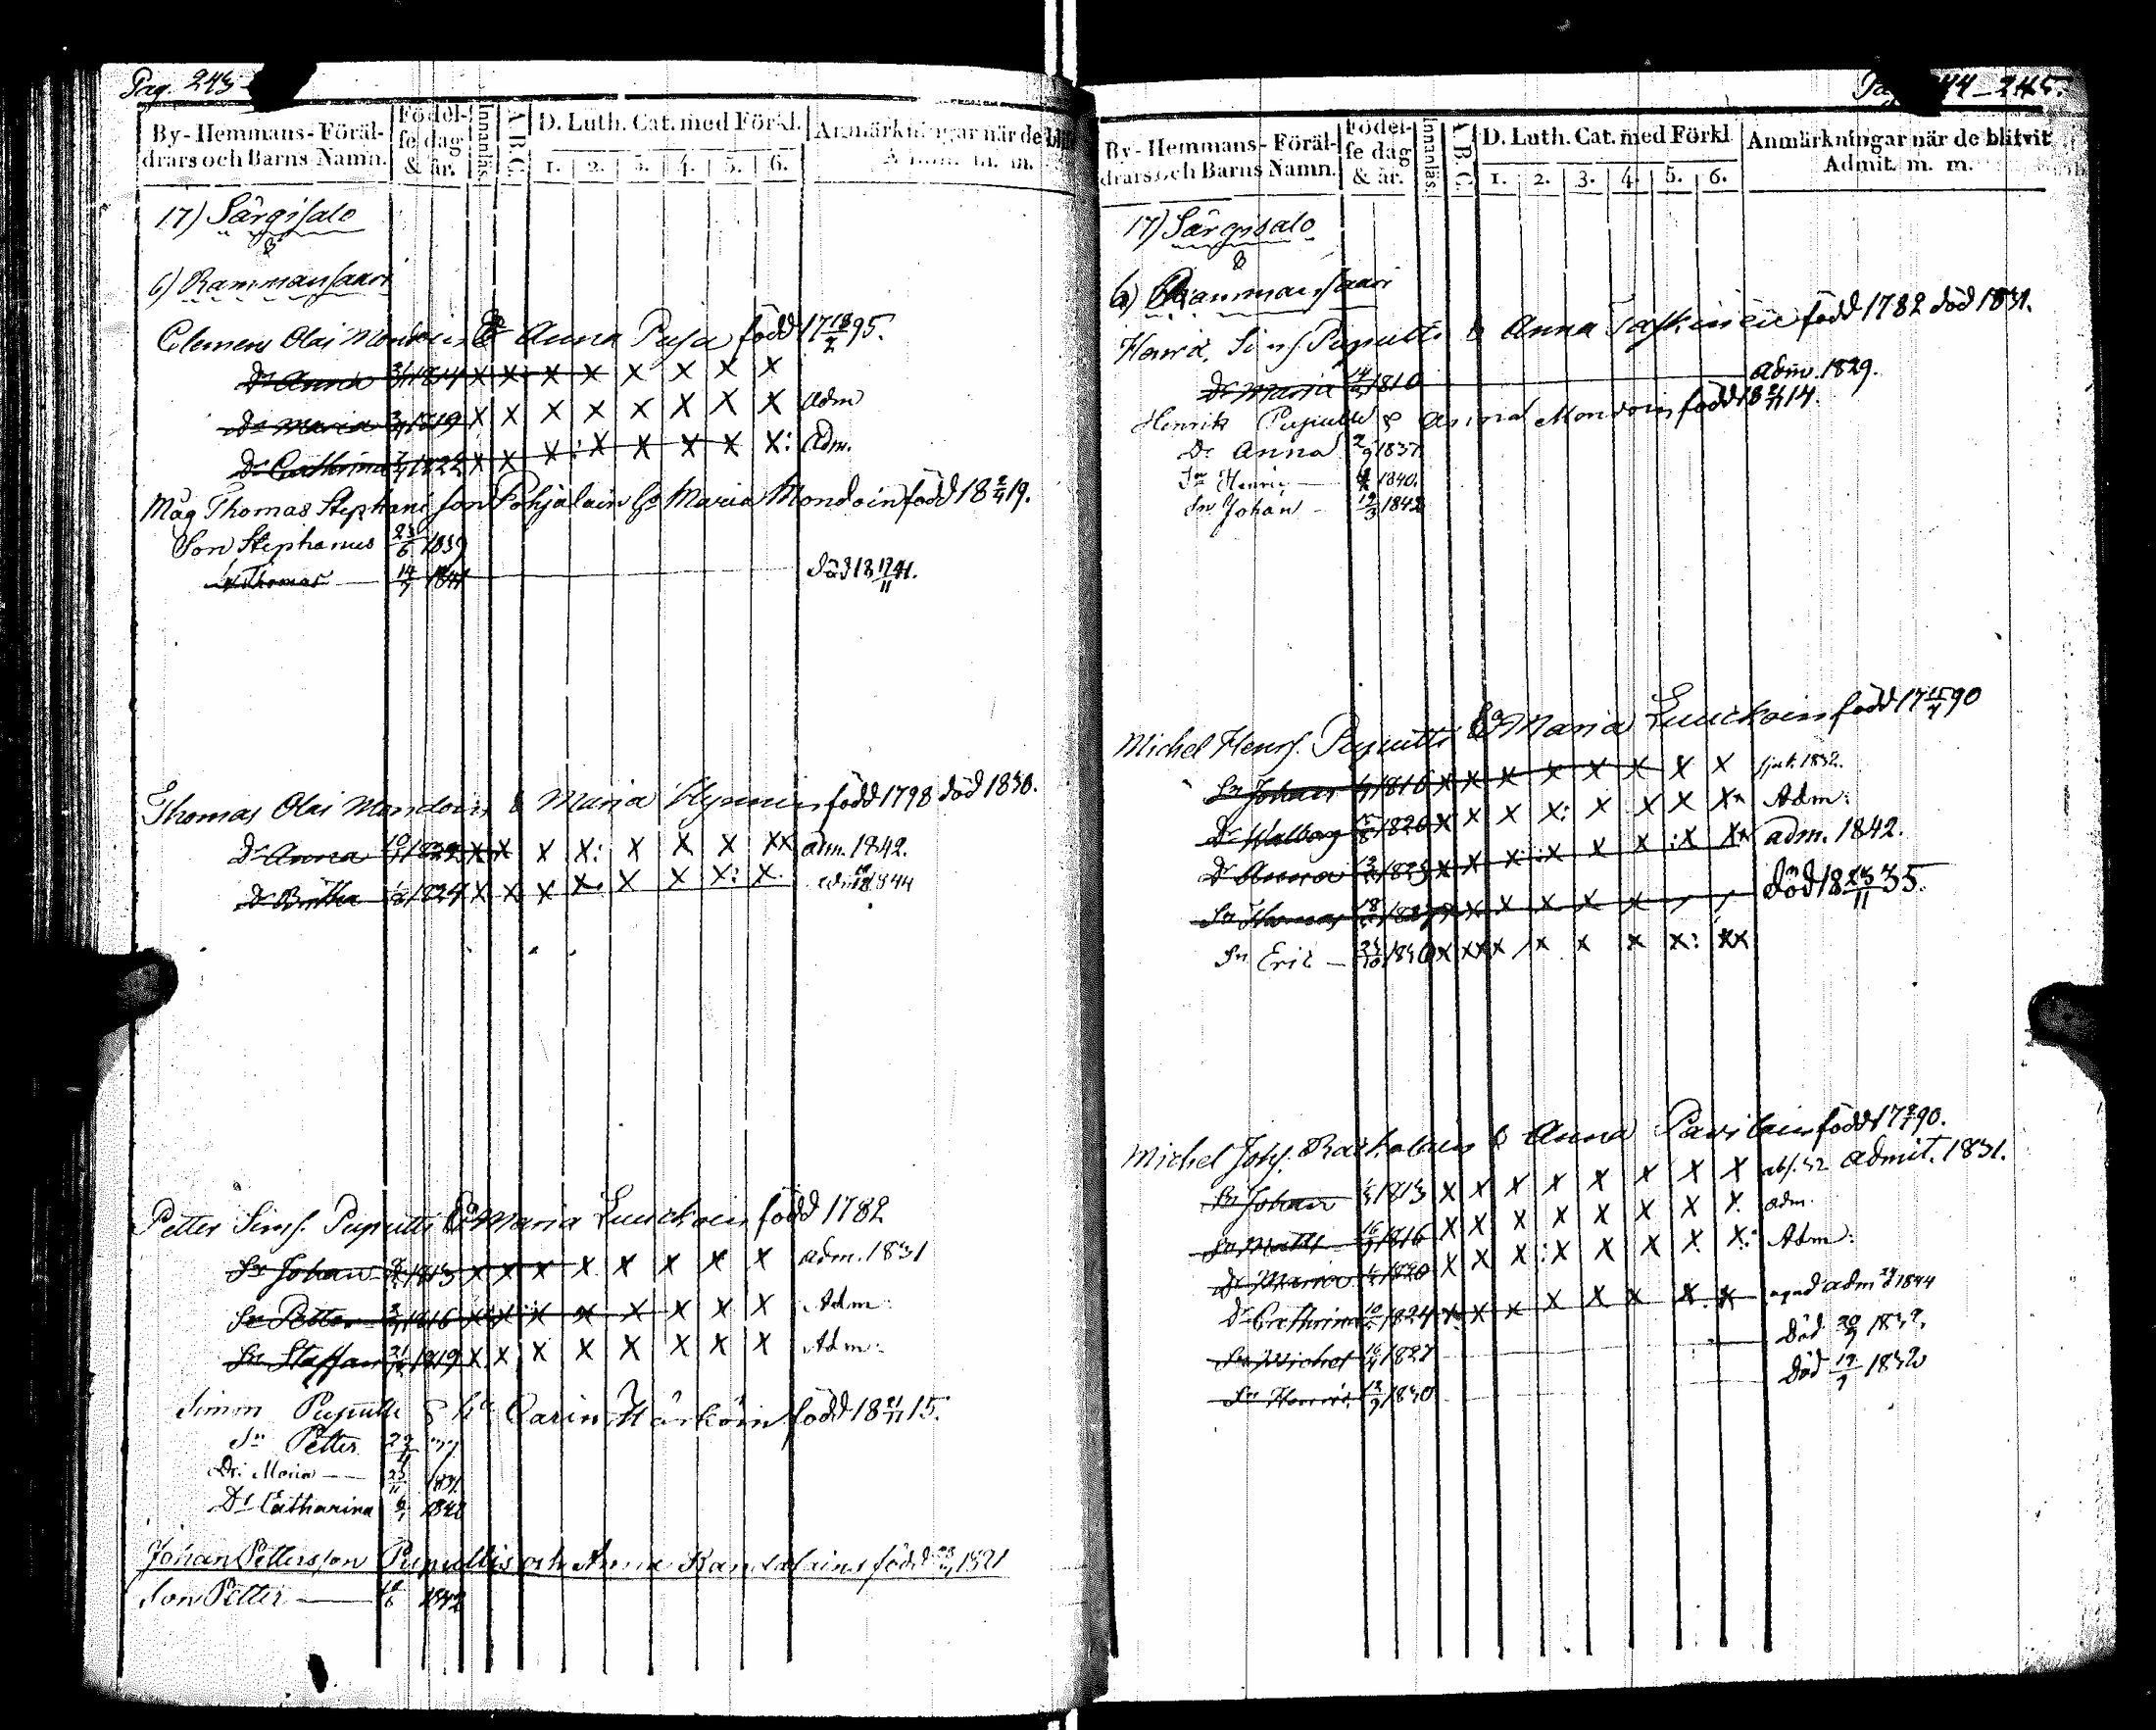 Pag. 243
By-Hemmans-Föräl-
drars och Barns Namn.
Födel-
se dag
& år.
Innanläs.
A.B.C.
D. Luth. Cat. med Förkl.
1. 2. 3. 4. 5. 6.
Anmärkningar när de
m. m.
17) Särgisalo
&
6) Rammansaari
Clemens Olai Mondoin & Anna Pusa född 17 18/2 95.
Dr Anna x x x x x x x x
Dr Maria 1819 x x x x x x x x Adm
Dr Cathrina 1822 x x x : x x x x x: Adm.
Måg Thomas Stephani son Pohjalain & Maria Mondoin född 18 2/4 19.
Son Stephanus 23/6 1839
Sn Thomas 14/7 1841 död 18 17/11 41.
Thomas Olai Mondoin & Maria född 1798 död 1830.
Dr Anna x x x x: x x x xx adm. 1842.
Dr Britha 1824 x x x x. x x x: x. 1844
Petter Sims. Puputti & Maria Luuckoin född 1782
Sn Johan 1813 x x x x x x x x adm. 1831
Sn Petter 1816 x x x x x x x x Adm:
Sn Staffan 1819 x x x x x x x x Adm:
Simon Puputti & Carin Härköin född 18 21/11 15.
Sn Petter
Dr. Maria
Dr Catharina 1842
Johan Pettersson Puputtis och Anna född 1821
Son Petter 1842
44-245.
By-Hemmans-Föräl-
drars och Barns Namn.
Födel-
se dag
& år.
Innanläs.
A.B.C.
D. Luth. Cat. med Förkl
1. 2. 3. 4. 5. 6.
Anmärkningar när de blifvit
Admit. m. m.
17) Särgisalo
&
6) Rammansaari
Henric. Sims Puputti & Anna född 1782 död 1831.
Dr Maria 1810 adm. 1829.
Henrik Puputti & Anna Mondoin född 18 21/11 14.
Dr Anna 2/9 1837
Sn Henric 1840.
Sn Johan 19/3 1842
Michel Hens. Puputti & Maria Luuckoin född 17 15/4 90
Sn Johan 1816 x x x x x x x x 1832.
Dr Walborg 1820 x x x x: x x x Adm:
Dr Anna 1823 x x x: :x x x :x adm. 1842.
Sn Thomas x x x x x död 18 23/11 35.
Sn Eric 1830 x xx x x x x x: xx
Michel Johs. & Anna Pavilain född 1790.
Sn Johan 1813 x x x x x x x x admit. 1831.
Sn Matts 1816 x x x x x x x x. adm.
Dr Maria 1820 x x x : x x x x x: Adm:
Dr Cathrina 1824 x. x x x x x x. x adm 1844
Sn Michel 1827 Död 1832.
Sn Henric 1830 Död 1832